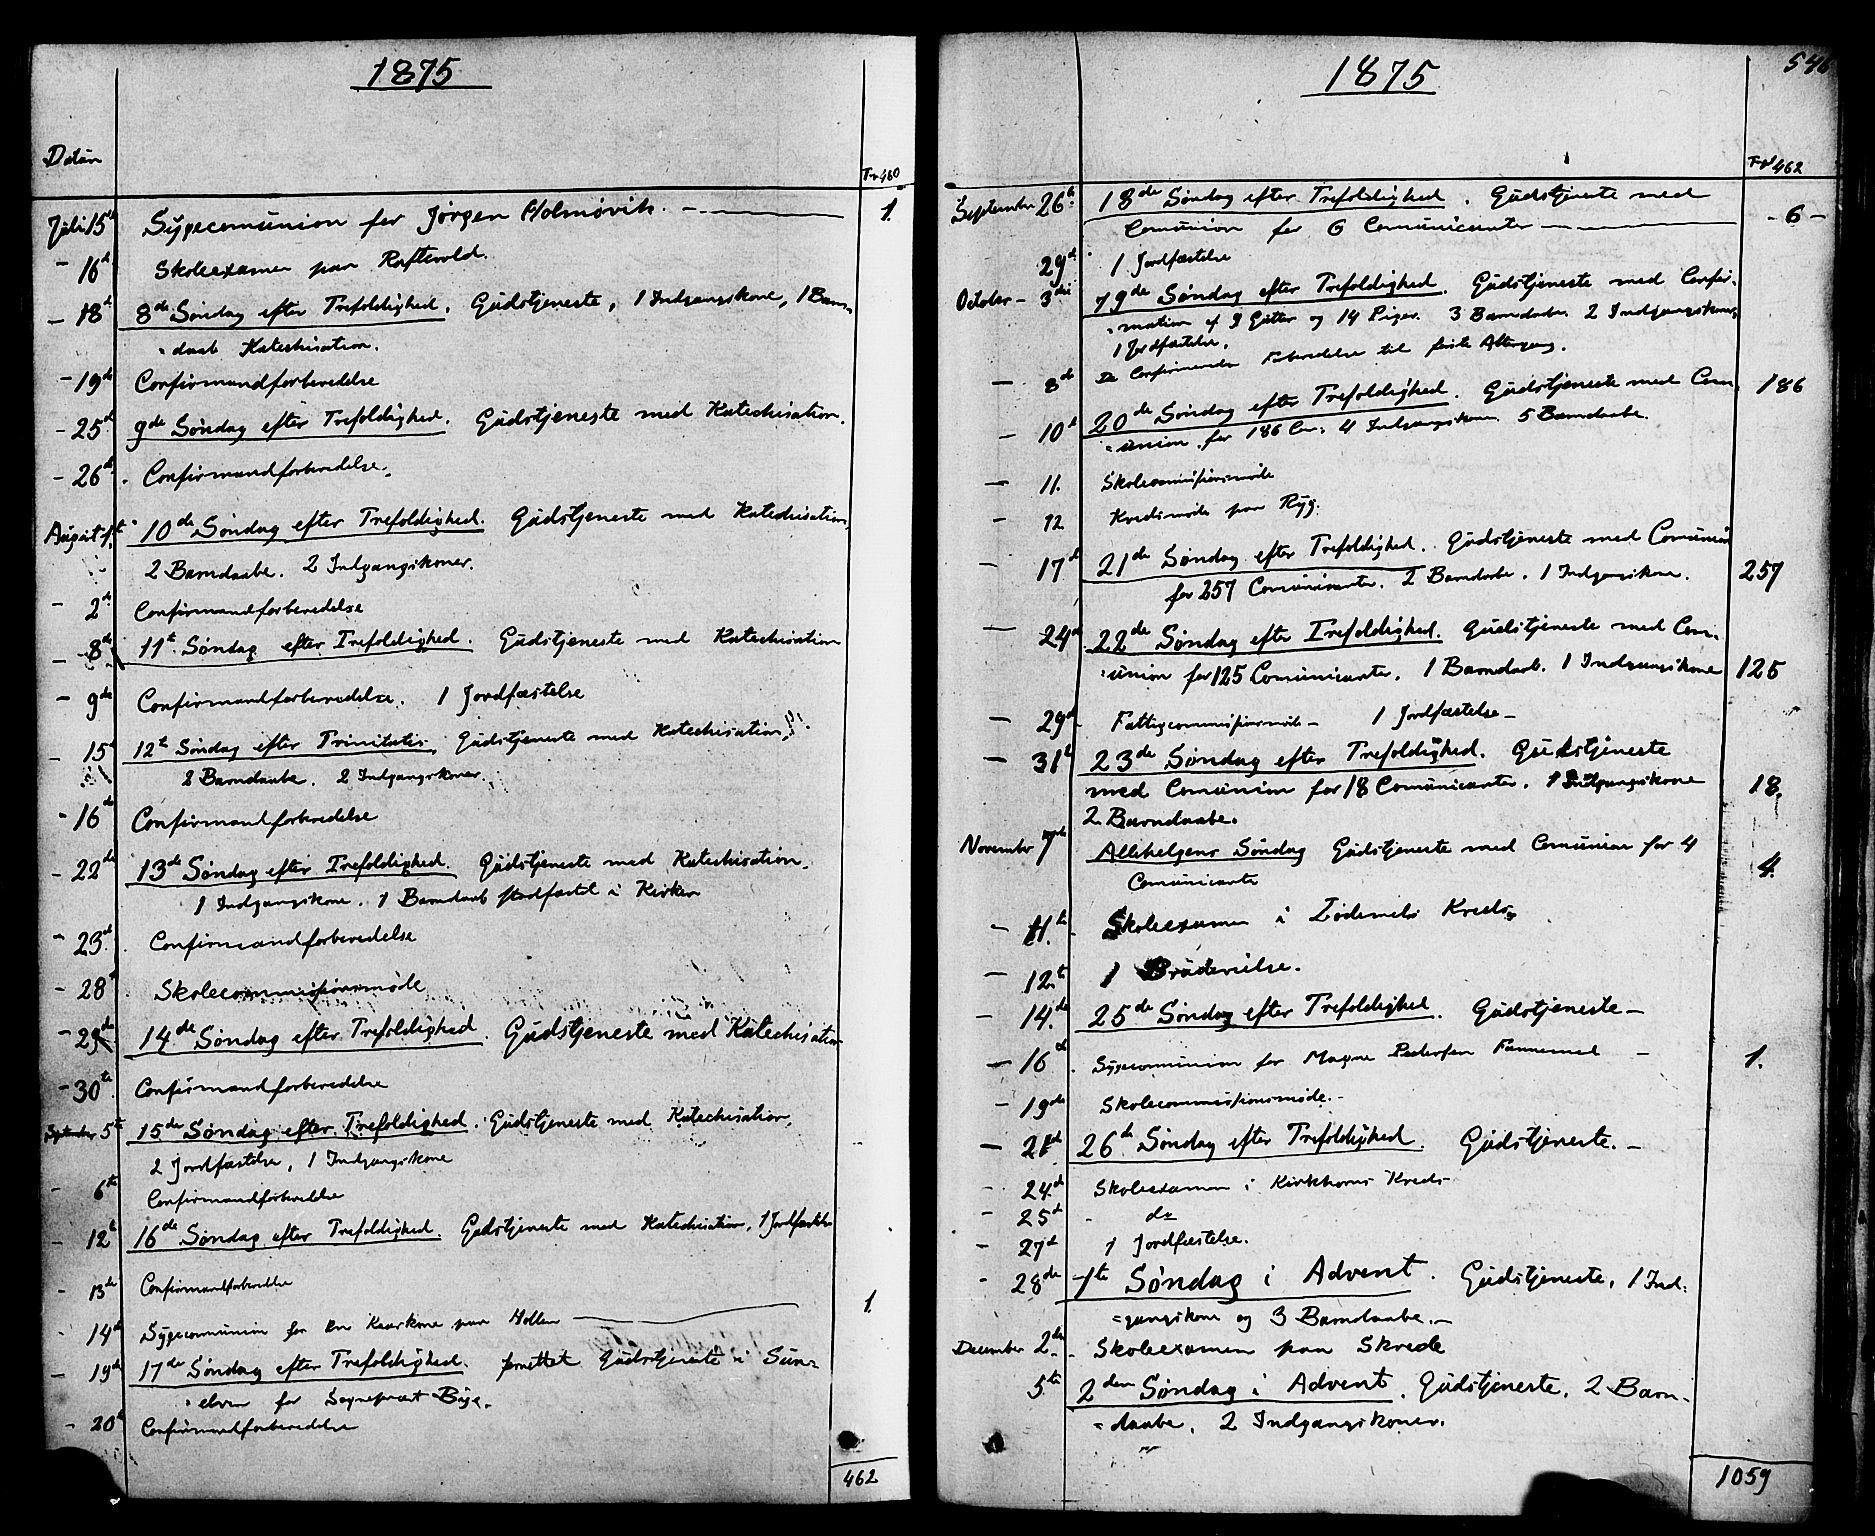 1875
Datum
Tr. 460
Juli 15de Sygecomunion for Jørgen Holmøvik. — 1.
— 16de Skoleexamen paa Raftevold.
— 18de 8de Søndag efter Trefoldighed. Gudstjeneste, 1 Indgangskone, 1 Barn-
=daab Katechisation.
— 19de Confirmandforberedelse
— 25de 9de Søndag efter Trefoldighed. Gudstjeneste med Katechisation.
— 26de Confirmandforberedelse.
August 1ste 10de Søndag efter Trefoldighed. Gudstjeneste med Katechisation,
2 Barndaabe. 2 Indgangskoner.
— 2de Confirmandforberedelse
— 8de 11te Søndag efter Trefoldighed. Gudstjeneste med Katechisation
— 9de Confirmandforberedelse. 1 Jordfæstelse
— 15de 12te Søndag efter Trinitatis, Gudstjeneste med Katechisation,
2 Barndaabe. 2 Indgangskoner.
— 16de Confirmandforberedelse
— 22de 13de Søndag efter Trefoldighed. Gudstjeneste med Katechisation.
1 Indgangskone. 1 Barndaab stadfæstet i Kirken
— 23de Confirmandforberedelse
— 28de Skolecommissionsmøde
— 29de 14de Søndag efter Trefoldighed. Gudstjeneste med Katechisation
— 30te Confirmandforberedelse
September 5te 15de Søndag efter Trefoldighed. Gudstjeneste med Katechisation,
2 Jordfæstelse, 1 Indgangskone
— 6te Confirmandforberedelse
— 12te 16de Søndag efter Trefoldighed. Gudstjeneste med Katechisation, 1 Jordfæstelse
— 13de Confirmandforberedelse
— 14de Sygecomunion for en Kaarkone paa Hollen — 1.
— 19de 17de Søndag efter Trefoldighed. forrettet Gudstjeneste i
for Sogneprest
— 20de Confirmandforberedelse
462
1875
546
Tr. 462
September 26de 18de Søndag efter Trefoldighed. Gudstjeneste med
Comunion for 6 Comunicanter — - 6 -
29de 1 Jordfæstelse
October — 3die 19de Søndag efter Trefoldighed. Gudstjeneste med Confir-
=mation af 9 Gutter og 14 Piger. 3 Barndaabe. 2 Indgangskoner,
1 Jordfæstelse.
— 8de De Confirmeredes Forberedelse til første Altergang.
— 10de 20de Søndag efter Trefoldighed. Gudstjeneste med Com- 186
=union for 186 Com. 4 Indgangskoner. 5 Barndaabe.
— 11. Skolecommissionsmøde
— 12 Kredsmøde paa Ryg.
— 17de 21de Søndag efter Trefoldighed. Gudstjeneste med Comunion
for 257 Comunicanter. 2 Barndaabe. 1 Indgangskone. 257
— 24de 22de Søndag efter Trefoldighed. Gudstjeneste med Com-
=union for 125 Comunicanter. 1 Barndaab. 1 Indgangskone 125
— 29de Fattigcommissionsmøde — 1 Jordfæstelse —
— 31te 23de Søndag efter Trefoldighed. Gudstjeneste
med Comunion for 18 Comunicanter. 1 Indgangskone 18.
2 Barndaabe.
November 7de Allehelgens Søndag Gudstjeneste med Comunion for 4
Comunicanter 4.
— 11te Skoleexamen i Kreds.
— 12te 1 Brudevielse.
— 14.de 25de Søndag efter Trefoldighed. Gudstjeneste —
— 16de Sygecomunion for Magne Pedersen Fannemel — 1.
— 19de Skolecommissionsmøde. —
— 21de 26de Søndag efter Trefoldighed. Gudstjeneste. —
— 24de Skoleexamen i Kirkhorns Kreds —
— 25de - do
— 27de 1 Jordfæstelse.
— 28de 1te Søndag i Advent. Gudstjeneste, 1 Ind-
=gangskone og 3 Barndaabe. —
December 2den Skoleexamen paa Skrede
5te 2den Søndag i Advent. Gudstjeneste, 2 Barn-
=daabe, 2 Indgangskoner.
1059